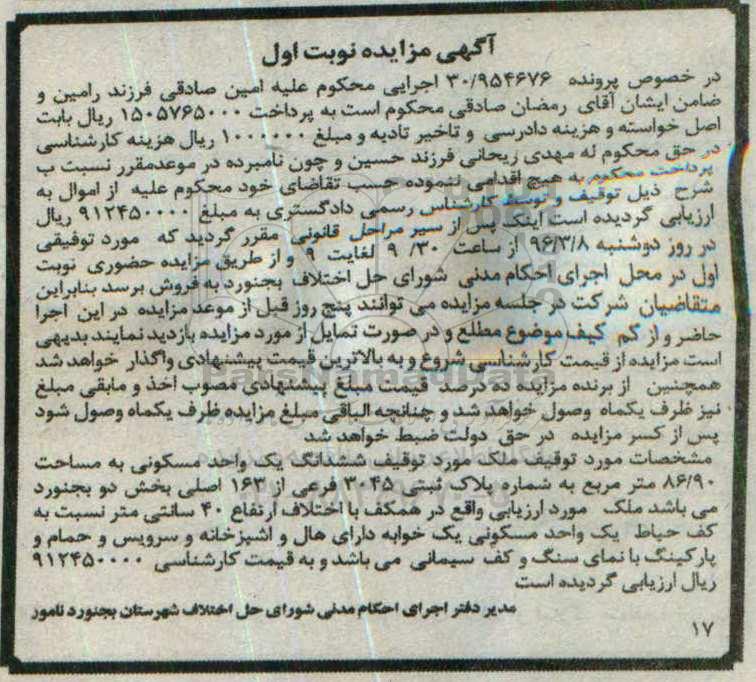 آگهی مزایده نوبت اول
در خصوص پرونده ۳۰/۹۵۴۶۷۶ اجرایی محکوم علیه امین صادقی فرزند رامین و
ضامن ایشان آقای رمضان صادقی محکوم است به پرداخت ۱۵۰۵۷۶۵۰۰۰ ریال بابت
اصل خواسته و هزینه دادرسی و تاخیر تادیه و مبلغ ۱۰۰۰۰۰۰ ریال هزینه کارشناسی
در حق محکوم له مهدی ریحانی فرزند حسین و چون نامبرده در موعدمقرر نسبت ب
پرداخت محکوم به هیچ اقدامی ننموده حسب تقاضای خود محکوم علیه از اموال به
شرح ذیل توقیف و توسط کارشناس رسمی دادگستری به مبلغ ۹۱۲۴۵۰۰۰۰ ریال
ارزیابی گردیده است اینک پس از سیر مراحل قانونی مقرر گردید که مورد توقیفی
در روز دوشنبه ۹۶/۳/۸ از ساعت ۹/۳۰ لغایت ۹ و از طریق مزایده حضوری نوبت
اول در محل اجرای احکام مدنی شورای حل اختلاف بجنورد به فروش برسد بنابراین
متقاضیان شرکت در جلسه مزایده می توانند پنج روز قبل از موعد مزایده در این اجرا
حاضر و از کم کیف موضوع مطلع و در صورت تمایل از مورد مزایده بازدید نمایند بدیهی
است مزایده از قیمت کارشناسی شروع و به بالاترین قیمت پیشنهادی واگذار خواهد شد
همچنین از برنده مزایده ۱۰ درصد قیمت مبلغ پیشنهادی مصوب اخذ و مابقی مبلغ
نیز ظرف یکماه وصول خواهد شد و چنانچه الباقی مبلغ مزایده ظرف یکماه وصول شود
پس از کسر مزایده در حق دولت ضبط خواهد شد
مشخصات مورد توقیف ملک مورد توقیف ششدانگ یک واحد مسکونی به مساحت
۸۶/۹۰ متر مربع به شماره پلاک ثبتی ۳۰۴۵ فرعی از ۱۶۳ اصلی بخش دو بجنورد
می باشد ملک مورد ارزیابی واقع در همکف با اختلاف ارتفاع ۴۰ سانتی متر نسبت به
کف حیاط یک واحد مسکونی یک خوابه دارای هال و اشپزخانه و سرویس و حمام و
پارکینگ با نمای سنگ و کف سیمانی می باشد و به قیمت کارشناسی ۹۱۲۴۵۰۰۰۰
ریال ارزیابی گردیده است
مدیر دفتر اجرای احکام مدنی شورای حل اختلاف شهرستان بجنورد نامور
۱۷